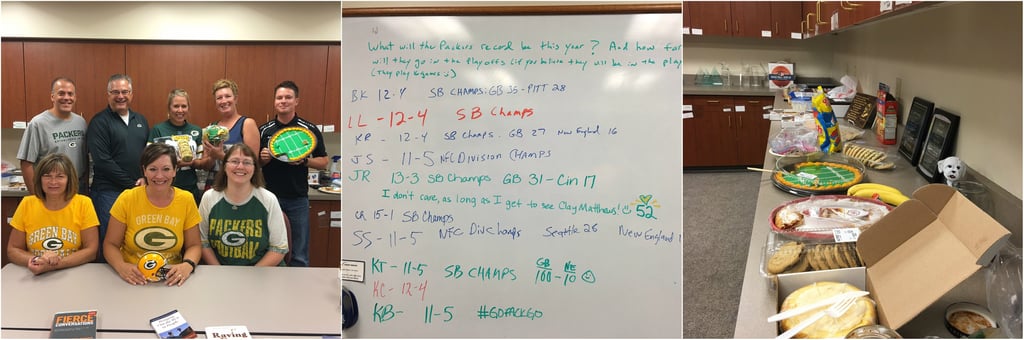 PACKERS
GREEN BAY
GREEN BAY
PACKERS
FOOTBALL
FIERCE
CONVERSATIONS
Raving
What will the Packers record be this year? And how far
will they go in the playoffs (if you believe they will be in the play
(They play 16 games :)
BK 12-4 SB CHAMPS: GB 35 - PITT 28
LL - 12-4 SB Champs
KR - 12-4 SB Champs. GB 27 New England 16
JS - 11-5 NFC Division CHAMPS
JR 13-3 SB Champs GB 31 - Cin 17
I don't care, as long as I get to see Clay Matthews! 52
15-1 SB Champs
SS - 11-5 NFC Div Champs Seattle 28 New England
KT - 11-5 SB CHAMPS GB 100 - NE 10
KC - 12-4
KB - 11-5 #GOPACKGO